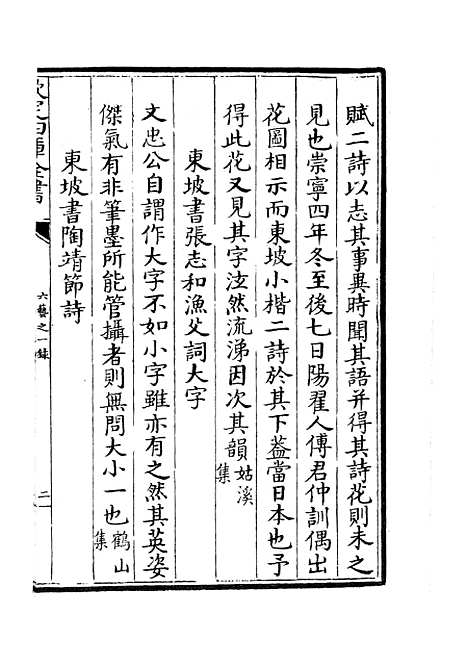 賦二詩以志其事異時聞其語并得其詩花則未之
見也崇寧四年冬至後七日陽翟人傅君仲訓偶出
花圖相示而東坡小楷二詩於其下葢當日本也予
得此花又見其字泫然流涕因次其韻姑溪集
東坡書張志和漁父詞大字
文忠公自謂作大字不如小字雖亦有之然其英姿
傑氣有非筆墨所能管攝者則無問大小一也鶴山集
東坡書陶靖節詩
欽定四庫全書
六藝之一錄
二